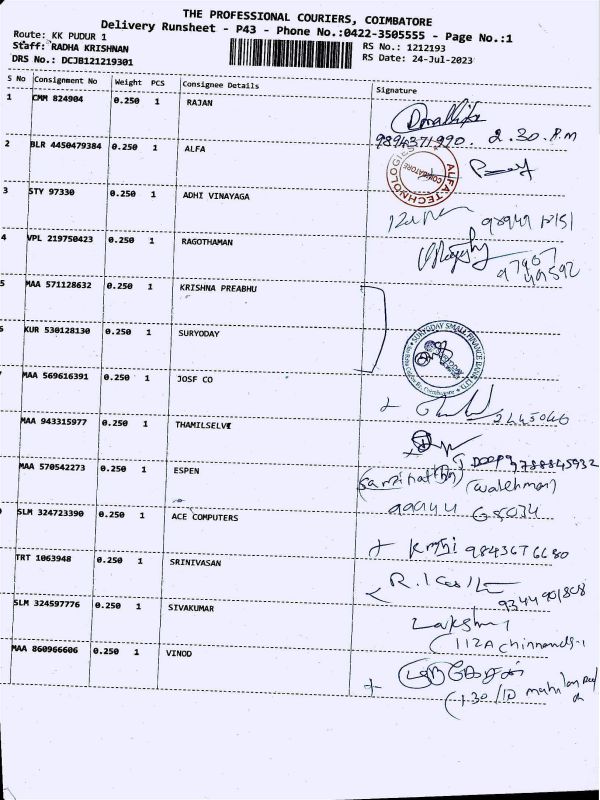 THE PROFESSIONAL COURIERS, COIMBATORE
Delivery Runsheet - P43 - Phone No.:0422-3505555 - Page No.:1
Route: KK PUDUR 1
RS No.: 1212193
Staff: RADHA KRISHNAN
RS Date: 24-Jul-2023
DRS No.: DCJB121219301
S No Consignment No Weight PCS Consignee Details Signature
1 CMM 824904 0.250 1 RAJAN
9894371990. 2.30.P.M
2 BLR 4450479384 0.250 1 ALFA
ALFA TECHNOLOGIES
COIMBATORE
3 STY 97330 0.250 1 ADHI VINAYAGA
4 VPL 219750423 0.250 1 RAGOTHAMAN
5 MAA 571128632 0.250 1 KRISHNA PREABHU
KUR 530128130 0.250 1 SURYODAY
SURYODAY SMALL FINANCE BANK LTD
MAA 569616391 0.250 1 JOSF CO
MAA 943315977 0.250 1 THAMILSELVI
9788845932
MAA 570542273 0.250 1 ESPEN
(watchman)
99944 65034
SLM 324723390 0.250 1 ACE COMPUTERS
9843676680
TRT 1063948 0.250 1 SRINIVASAN
9344901808
SLM 324597776 0.250 1 SIVAKUMAR
Lakshmi
MAA 860966606 0.250 1 VINOD